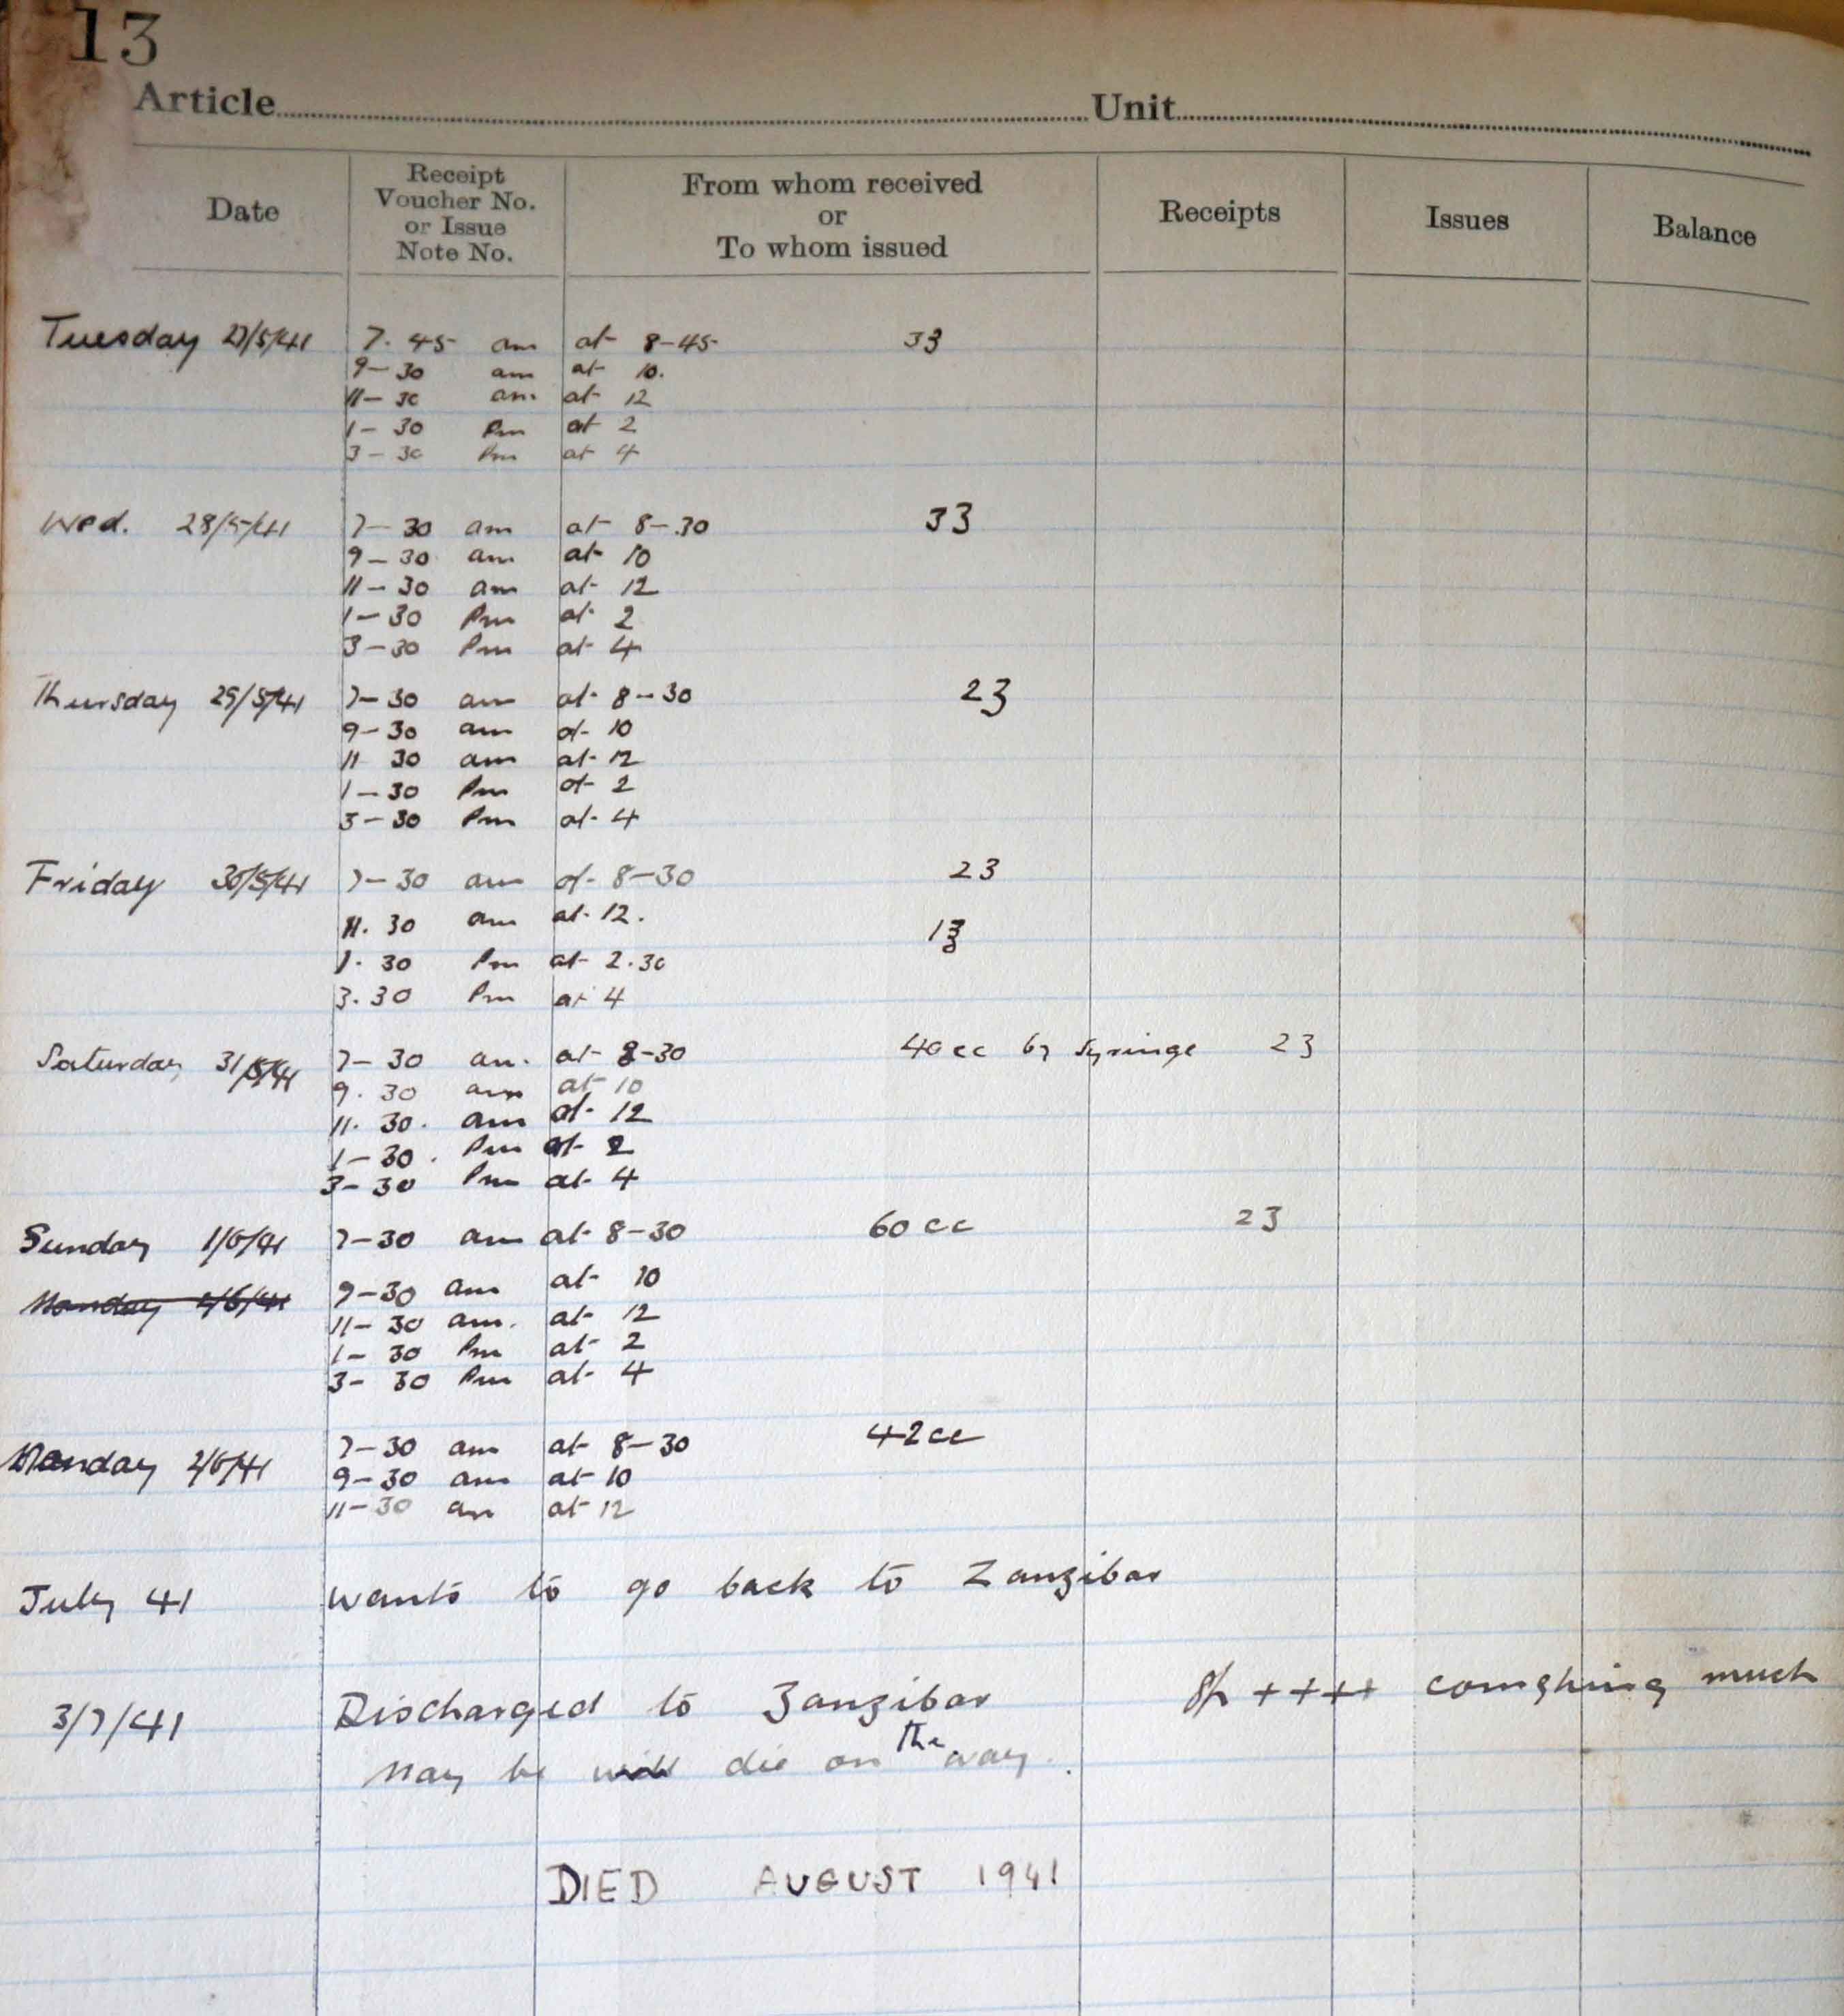 13
Article Unit
Date Receipt Voucher No. or Issue Note No. From whom received or To whom issued Receipts Issues Balance
Tuesday 27/5/41 7. 45 am at 8-45 33
9-30 am at 10.
11-30 am at 12
1-30 Pm at 2
3-30 Pm at 4
Wed. 28/5/41 7-30 am at 8-30 33
9-30 am at 10
11-30 am at 12
1-30 Pm at 2
3-30 Pm at 4
Thursday 29/5/41 7-30 am at 8-30 23
9-30 am at 10
11 30 am at 12
1-30 Pm at 2
3-30 Pm at 4
Friday 30/5/41 7-30 am at 8-30 23
11. 30 am at 12. 13
1. 30 Pm at 2.30
3. 30 Pm at 4
Saturday 31/5/41 7-30 am. at 8-30 40 cc by Syringe 23
9. 30 am at 10
11. 30. am at 12
1-30. Pm at 2
3-30 Pm at 4
Sunday 1/6/41 7-30 am at 8-30 60 cc 23
Monday 2/6/41 9-30 am at 10
11-30 am. at 12
1-30 Pm at 2
3-30 Pm at 4
Monday 2/6/41 7-30 am at 8-30 42 cc
9-30 am at 10
11-30 am at 12
July 41 wants to go back to Zanzibar
3/7/41 Discharged to Zanzibar ++++ coughing much
May be will die on the way.
DIED AUGUST 1941